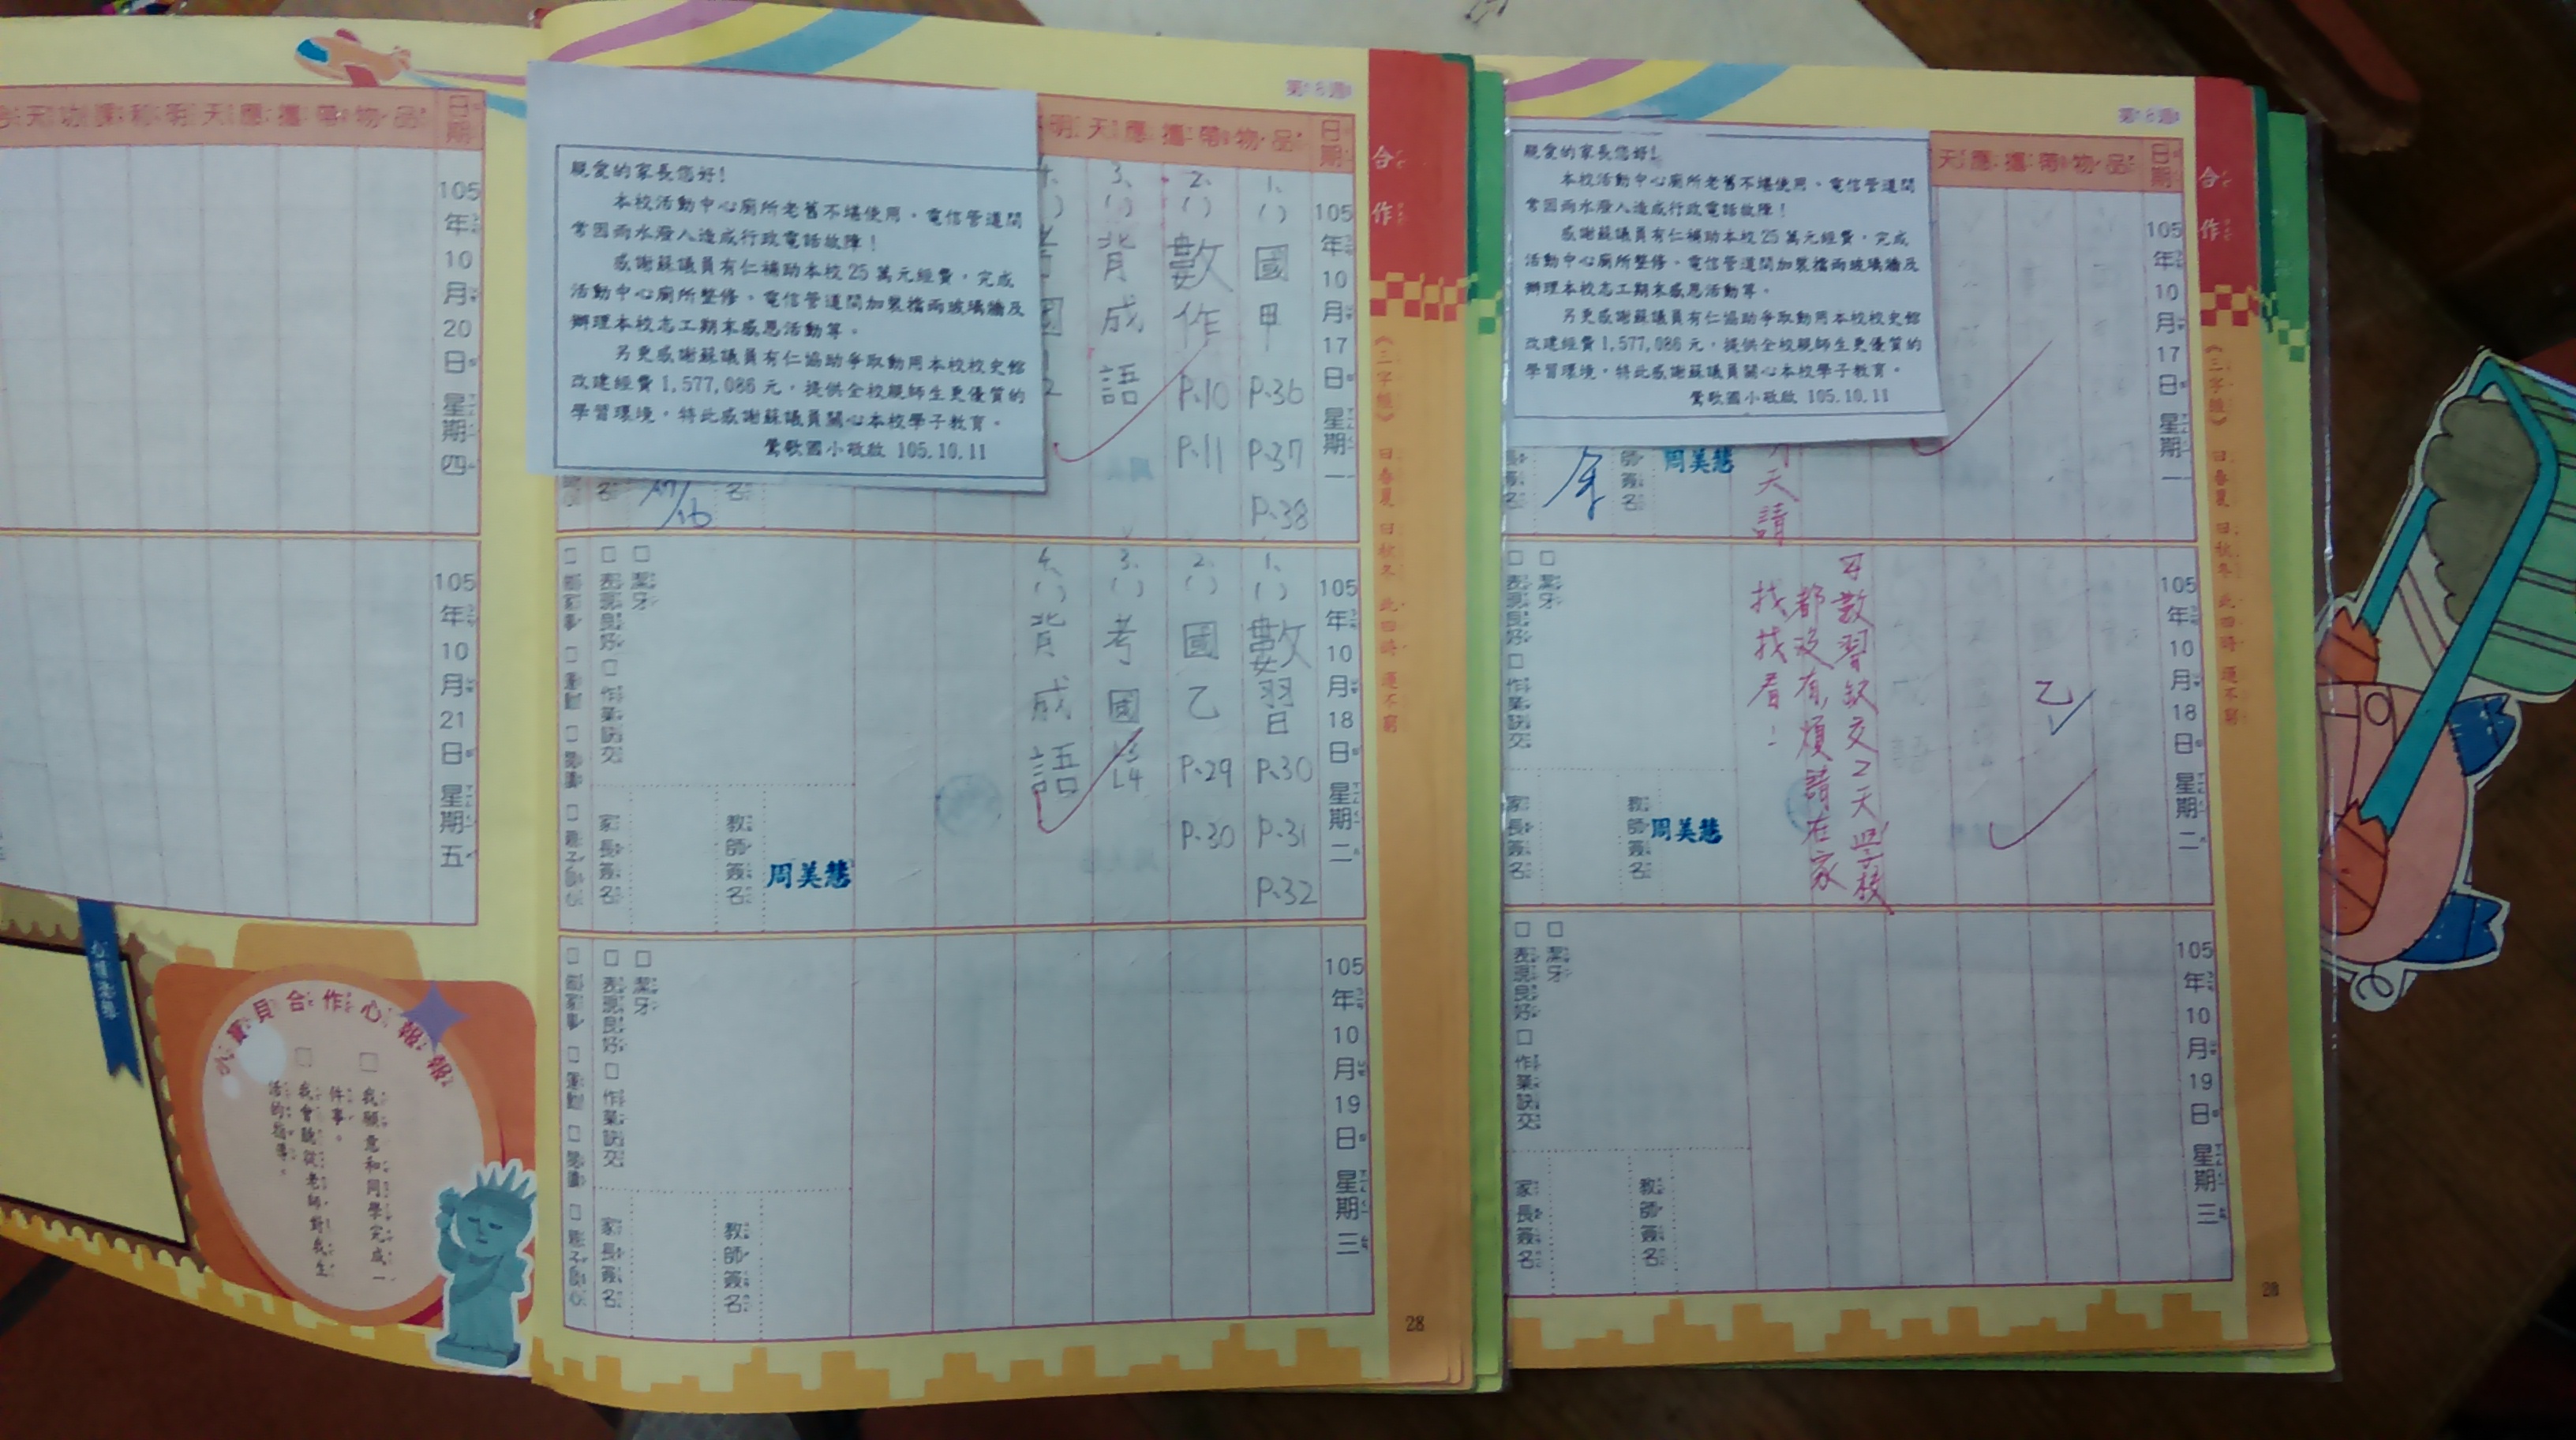 天功課和明天應攜帶物品
日期
105年10月20日星期四
105年10月21日星期五
小寶貝合作心報報
□我願意和同學完成一件事。
□我會聽從老師對我生活的指導。
親愛的家長您好!
本校活動中心廁所老舊不堪使用、電信管道間
常因雨水潑入造成行政電話故障!
感謝蘇議員有仁補助本校25萬元經費,完成
活動中心廁所整修、電信管道間加裝擋雨玻璃牆及
辦理本校志工期末感恩活動等。
另更感謝蘇議員有仁協助爭取動用本校校史館
改建經費1,577,086元,提供全校親師生更優質的
學習環境,特此感謝蘇議員關心本校學子教育。
鶯歌國小敬啟 105.10.11
明天應攜帶物品
日期
105年10月17日星期一
1.()國甲P.36 P.37 P.38
2.()數作P.10 P.11
3.()背成語
105年10月18日星期二
1.()數習P.30 P.31 P.32
2.()國乙P.29 P.30
3.()考國L3 L4
4.()背成語
□潔牙
□表現良好□作業缺交
家長簽名
教師簽名
周美慧
105年10月19日星期三
□潔牙
□表現良好□作業缺交
家長簽名
教師簽名
合作
《三字經》 曰春夏 曰秋冬 此四時 運不窮
28
親愛的家長您好!
本校活動中心廁所老舊不堪使用、電信管道間
常因雨水潑入造成行政電話故障!
感謝蘇議員有仁補助本校25萬元經費,完成
活動中心廁所整修、電信管道間加裝擋雨玻璃牆及
辦理本校志工期末感恩活動等。
另更感謝蘇議員有仁協助爭取動用本校校史館
改建經費1,577,086元,提供全校親師生更優質的
學習環境,特此感謝蘇議員關心本校學子教育。
鶯歌國小敬啟 105.10.11
天應攜帶物品
日期
105年10月17日星期一
天請
師簽名
周美慧
105年10月18日星期二
乙
數習缺交2天學校
都沒有,煩請在家
找找看!
□潔牙
□表現良好□作業缺交
家長簽名
教師簽名
周美慧
105年10月19日星期三
□潔牙
□表現良好□作業缺交
家長簽名
教師簽名
合作
《三字經》 曰春夏 曰秋冬 此四時 運不窮
28